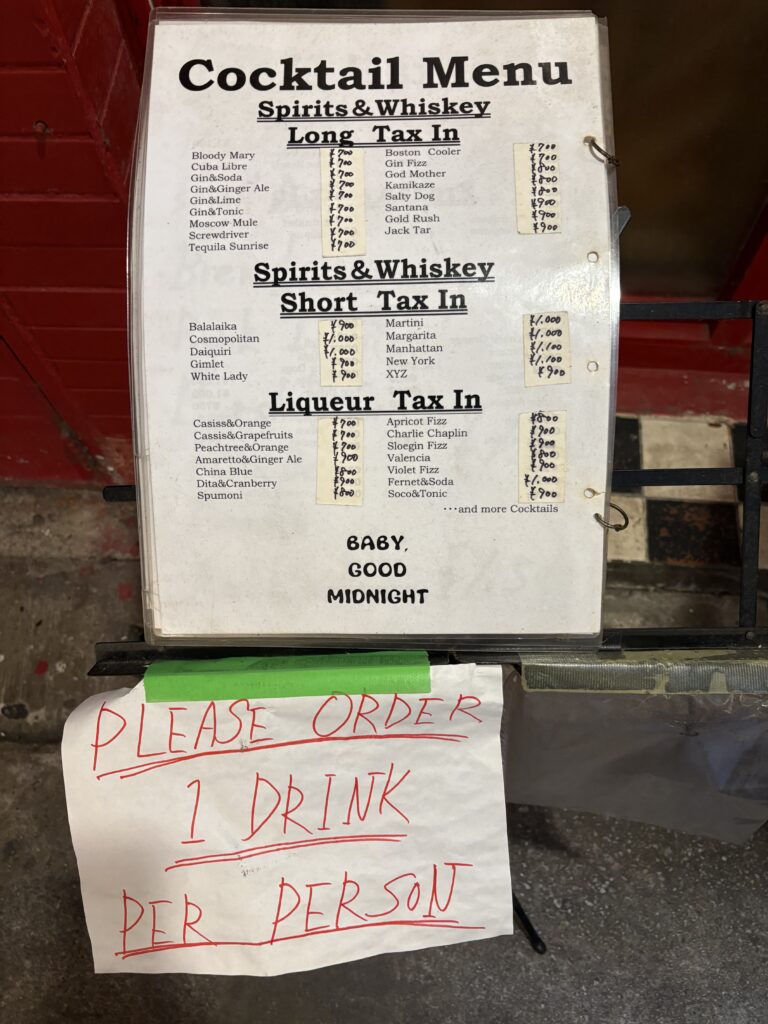 Cocktail Menu
Spirits&Whiskey
Long Tax In
Bloody Mary ¥700
Cuba Libre ¥700
Gin&Soda ¥700
Gin&Ginger Ale ¥700
Gin&Lime ¥700
Gin&Tonic ¥700
Moscow Mule ¥700
Screwdriver ¥700
Tequila Sunrise ¥700
Boston Cooler ¥700
Gin Fizz ¥700
God Mother ¥800
Kamikaze ¥800
Salty Dog ¥800
Santana ¥900
Gold Rush ¥900
Jack Tar ¥900
Spirits&Whiskey
Short Tax In
Balalaika ¥900
Cosmopolitan ¥1.000
Daiquiri ¥1.000
Gimlet ¥900
White Lady ¥900
Martini ¥1.000
Margarita ¥1.000
Manhattan ¥1.100
New York ¥1.100
XYZ ¥900
Liqueur Tax In
Casiss&Orange ¥700
Cassis&Grapefruits ¥700
Peachtree&Orange ¥700
Amaretto&Ginger Ale ¥900
China Blue ¥800
Dita&Cranberry ¥900
Spumoni ¥800
Apricot Fizz ¥800
Charlie Chaplin ¥900
Sloegin Fizz ¥900
Valencia ¥800
Violet Fizz ¥900
Fernet&Soda ¥1.000
Soco&Tonic ¥900
…and more Cocktails
BABY,
GOOD
MIDNIGHT
PLEASE ORDER
1 DRINK
PER PERSON